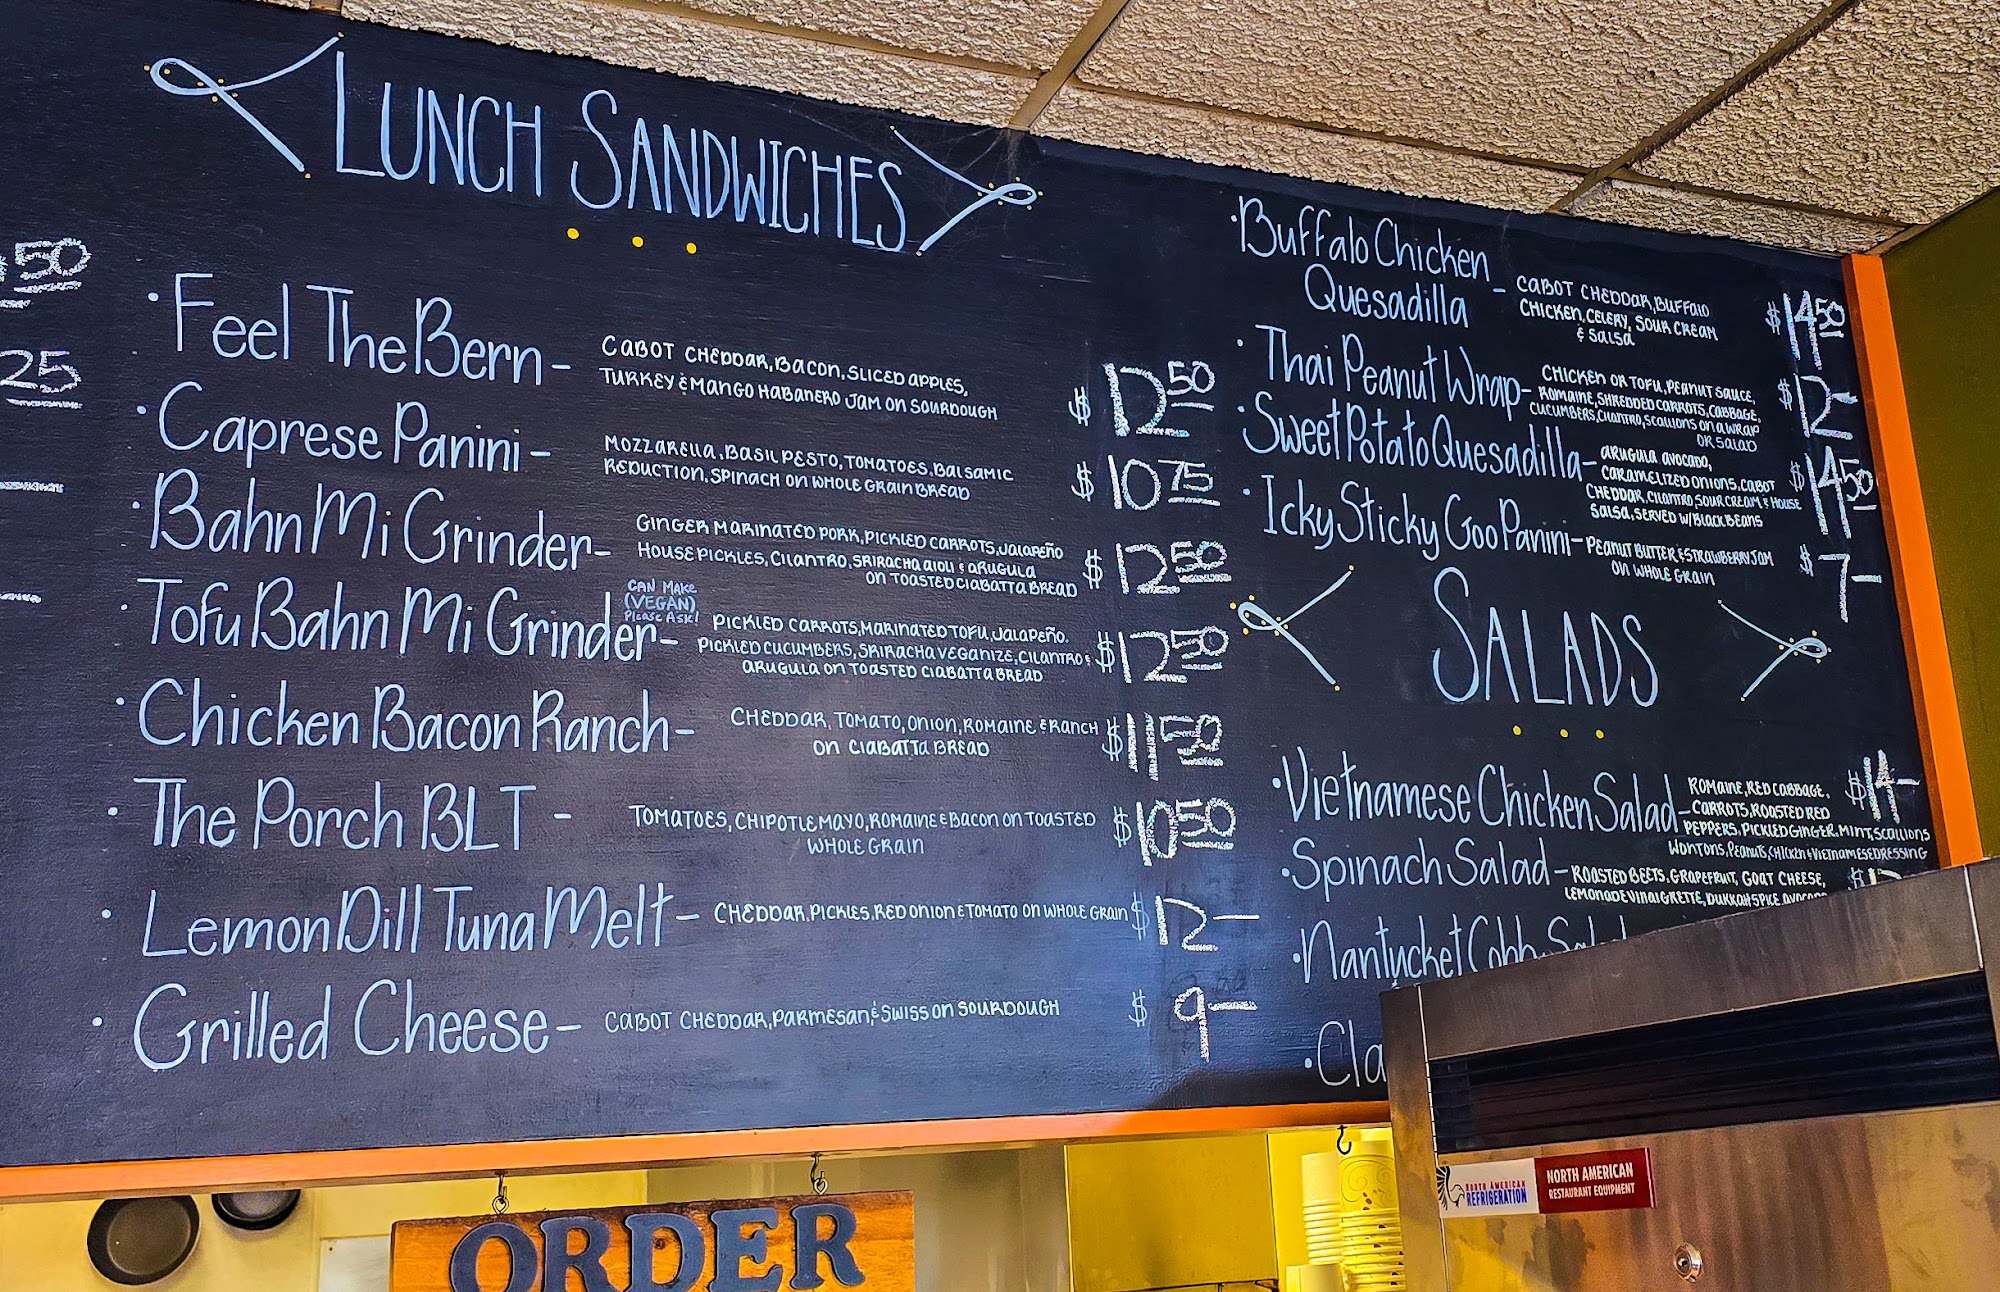 50
25
LUNCH SANDWICHES
· Feel The Bern – CABOT CHEDDAR, BACON, SLICED APPLES,
TURKEY & MANGO HABANERO JAM ON SOURDOUGH
$12 50
· Caprese Panini – MOZZARELLA, BASIL PESTO, TOMATOES, BALSAMIC
REDUCTION, SPINACH ON WHOLE GRAIN BREAD
$10 75
· Bahn Mi Grinder – GINGER MARINATED PORK, PICKLED CARROTS, JALAPEÑO
HOUSE PICKLES, CILANTRO, SRIRACHA AIOLI & ARUGULA
ON TOASTED CIABATTA BREAD
$12 50
· Tofu Bahn Mi Grinder –
CAN MAKE
(VEGAN)
Please Ask!
PICKLED CARROTS, MARINATED TOFU, JALAPEÑO.
PICKLED CUCUMBERS, SRIRACHA VEGANIZE, CILANTRO &
ARUGULA ON TOASTED CIABATTA BREAD
$12 50
· Chicken Bacon Ranch – CHEDDAR, TOMATO, ONION, ROMAINE & RANCH
ON CIABATTA BREAD
$11 50
· The Porch BLT – TOMATOES, CHIPOTLE MAYO, ROMAINE & BACON ON TOASTED
WHOLE GRAIN
$10 50
· Lemon Dill Tuna Melt – CHEDDAR, PICKLES, RED ONION & TOMATO ON WHOLE GRAIN $12 –
· Grilled Cheese – CABOT CHEDDAR, PARMESAN, & SWISS ON SOURDOUGH $9 –
· Buffalo Chicken
Quesadilla – CABOT CHEDDAR, BUFFALO
CHICKEN, CELERY, SOUR CREAM
& SALSA
$14 50
· Thai Peanut Wrap – CHICKEN OR TOFU, PEANUT SAUCE,
ROMAINE, SHREDDED CARROTS, CABBAGE,
CUCUMBERS, CILANTRO, SCALLIONS ON A WRAP
OR SALAD
$12 –
· Sweet Potato Quesadilla – ARUGULA AVOCADO,
CARAMELIZED ONIONS, CABOT
CHEDDAR, CILANTRO, SOUR CREAM & HOUSE
SALSA, SERVED W/ BLACK BEANS
$14 50
· Icky Sticky Goo Panini – PEANUT BUTTER & STRAWBERRY JAM
ON WHOLE GRAIN
$7 –
SALADS
· Vietnamese Chicken Salad – ROMAINE, RED CABBAGE,
CARROTS, ROASTED RED
PEPPERS, PICKLED GINGER, MINT, SCALLIONS
WONTONS, PEANUTS, CHICKEN & VIETNAMESE DRESSING
$14 –
· Spinach Salad – ROASTED BEETS, GRAPEFRUIT, GOAT CHEESE,
LEMONADE VINAIGRETTE, DUKKAH SPICE, AVOCADO
· Nantucket Cobb Salad
· Cla
ORDER
NORTH AMERICAN
REFRIGERATION
NORTH AMERICAN
RESTAURANT EQUIPMENT